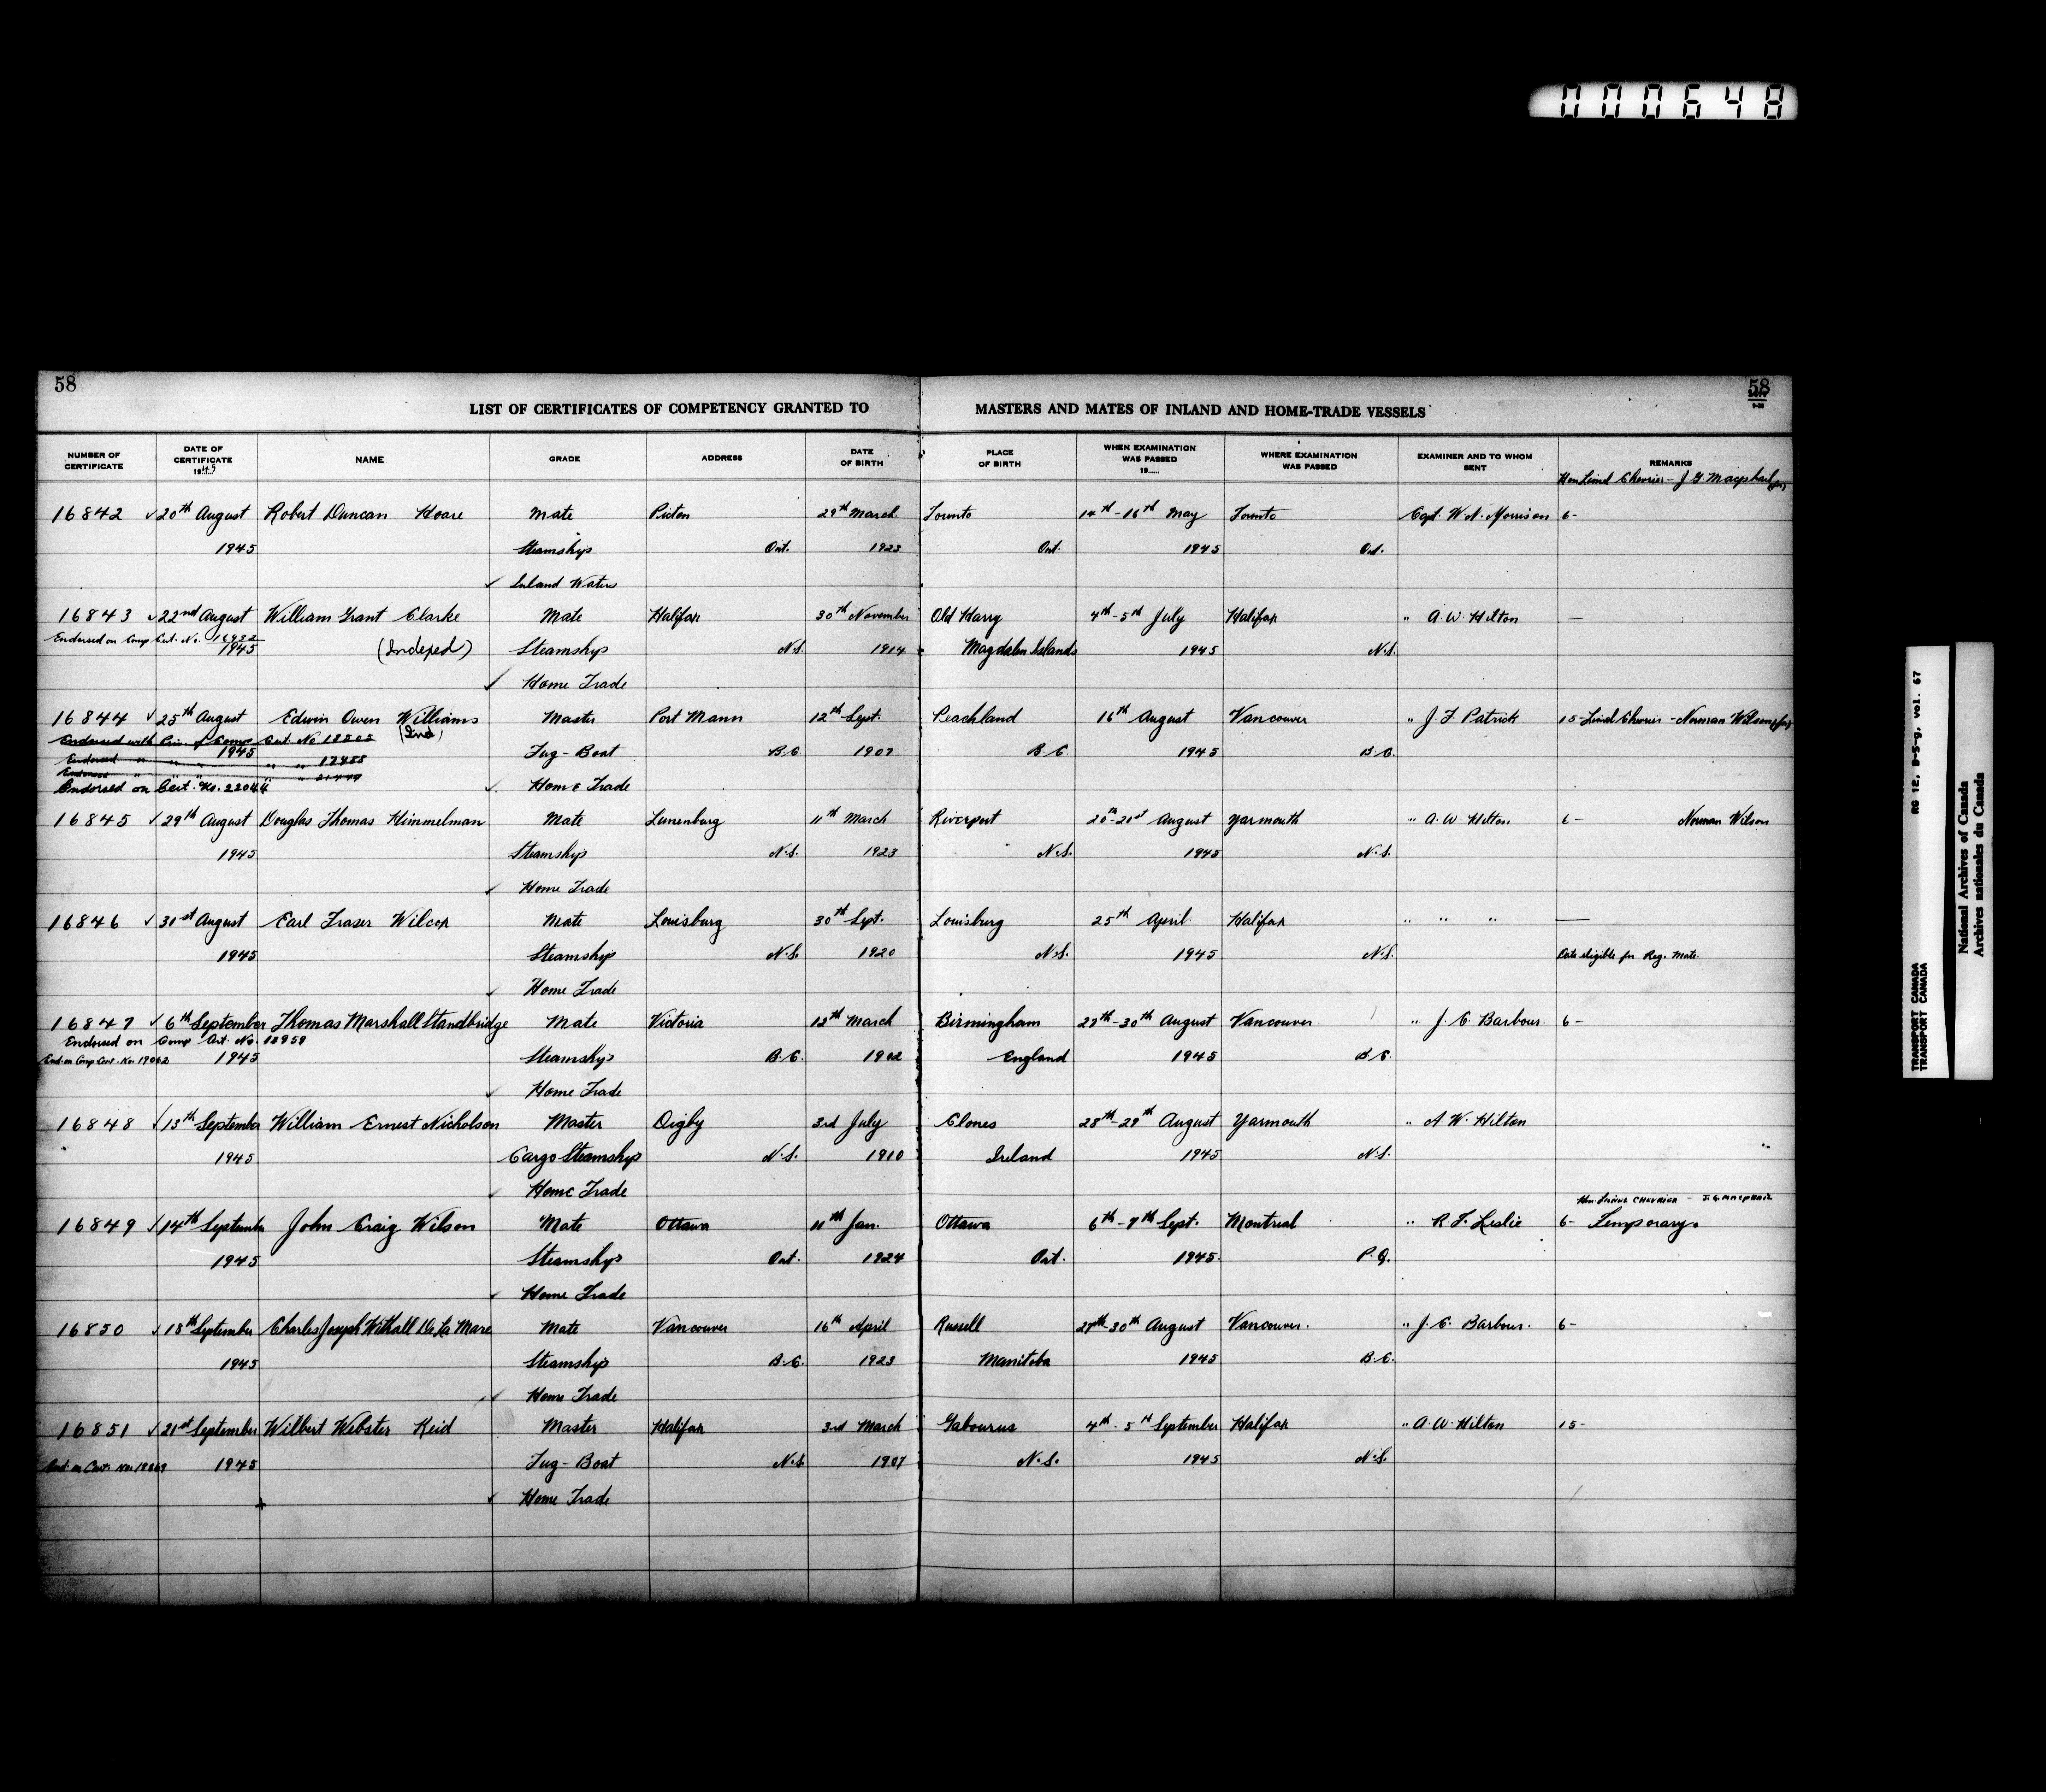 000648
58
58
LIST OF CERTIFICATES OF COMPETENCY GRANTED TO MASTERS AND MATES OF INLAND AND HOME-TRADE VESSELS
NUMBER OF CERTIFICATE DATE OF CERTIFICATE 1945 NAME GRADE ADDRESS DATE OF BIRTH PLACE OF BIRTH WHEN EXAMINATION WAS PASSED 19...... WHERE EXAMINATION WAS PASSED EXAMINER AND TO WHOM SENT REMARKS
Hon Lionel Chevrier - J G Macphail
16842 ✓ 20th August Robert Duncan Hoare Mate Picton 29th March Toronto 14th-16th May Toronto Capt. W. A. Morrison 6-
1945 Steamship Ont. 1923 Ont. 1945 Ont.
✓ Inland Waters
16843 ✓ 22nd August William Grant Clarke Mate Halifax 30th November Old Harry 4th-5th July Halifax " A. W. Hilton —
Endorsed on Comp Cert. No. 16932
1945 (Indexed) Steamship N.S. 1914 Magdalen Islands 1945 N.S.
✓ Home Trade
16844 ✓ 25th August Edwin Owen Williams Master Port Mann 12th Sept. Peachland 16th August Vancouver " J. F. Patrick 15- Lionel Chevrier - Norman Wilson
Endorsed with Comp Cert. No 18505 (Ind)
1945 Tug-Boat B.C. 1907 B.C. 1945 B.C.
Endorsed " " " " " 17458
Endorsed " " " " 21444
Endorsed on Cert. No. 22044 ✓ Home Trade
16845 ✓ 29th August Douglas Thomas Himmelman Mate Lunenburg 11th March Riverport 20th-21st August Yarmouth " A. W. Hilton 6- Norman Wilson
1945 Steamship N.S. 1923 N.S. 1945 N.S.
✓ Home Trade
16846 ✓ 31st August Earl Fraser Wilcox Mate Louisburg 30th Sept. Louisburg 25th April Halifax " " " —
1945 Steamship N.S. 1920 N.S. 1945 N.S. Date eligible for Reg. Mate.
✓ Home Trade
16847 ✓ 6th September Thomas Marshall Standbridge Mate Victoria 12th March Birmingham 27th-30th August Vancouver " J. C. Barbour. 6-
Endorsed on Comp Cert. No. 18959
End. on Comp Cert. No. 19062 1945 Steamship B.C. 1902 England 1945 B.C.
✓ Home Trade
16848 ✓ 13th September William Ernest Nicholson Master Digby 3rd July Clones 28th-29th August Yarmouth " A. W. Hilton
1945 Cargo Steamship N.S. 1910 Ireland 1945 N.S. "
✓ Home Trade
Hon. Lionel CHEVRIER - J. G. MACPHAIL
16849 ✓ 14th September John Craig Wilson Mate Ottawa 11th Jan. Ottawa 6th-7th Sept. Montreal " R. F. Leslie 6- Temporary.
1945 Steamship Ont. 1924 Ont. 1945 P.Q.
✓ Home Trade
16850 ✓ 18th September Charles Joseph Withall De La Mare Mate Vancouver 16th April Russell 27th-30th August Vancouver. " J. C. Barbour. 6-
1945 Steamship B.C. 1923 Manitoba 1945 B.C.
✓ Home Trade
16851 ✓ 21st September Wilbert Webster Reid Master Halifax 3rd March Gabourus 4th-5th September Halifax " A. W. Hilton 15-
End. on Cert. No. 1945 Tug-Boat N.S. 1907 N.S. 1945 N.S.
✓ Home Trade
RG 12, B-5-g, vol. 67
TRANSPORT CANADA
TRANSPORT CANADA
National Archives of Canada
Archives nationales du Canada